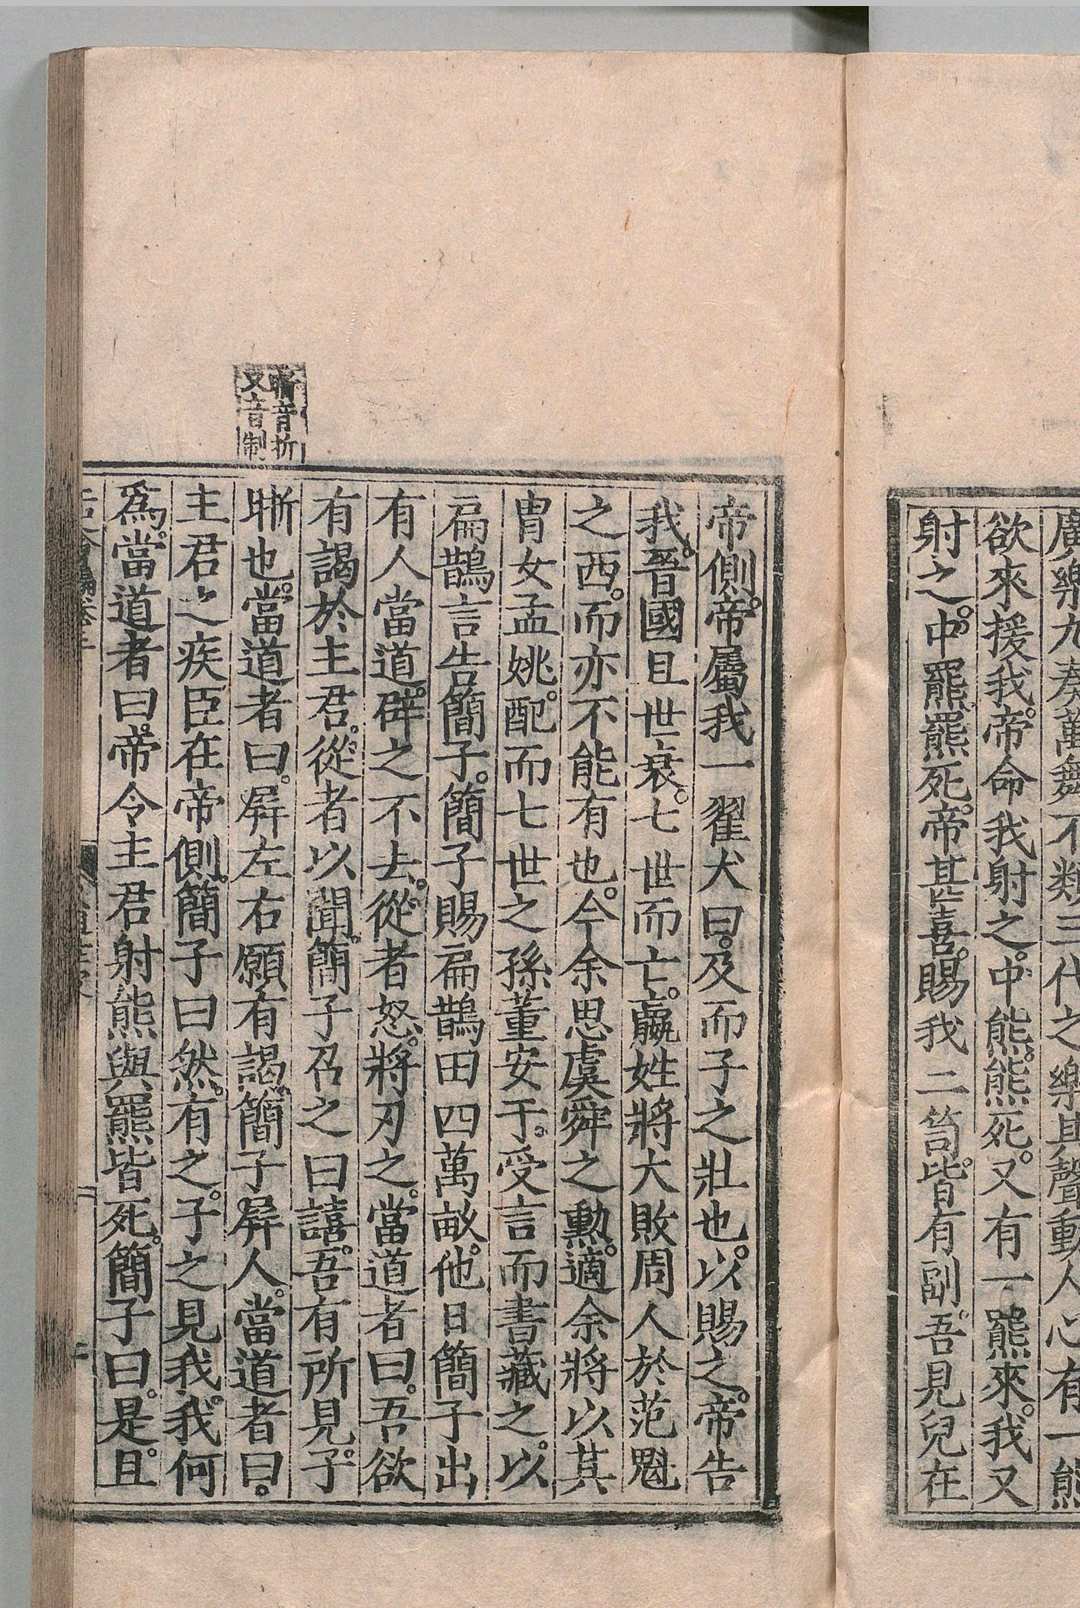 廣樂九奏萬舞不類三代之樂其聲動人心有一熊
欲來援我帝命我射之中熊熊死又有一羆來我又
射之中羆羆死帝甚喜賜我二笥皆有副吾見兒在
帝側帝屬我一翟犬曰及而子之壯也以賜之帝告
我晉國且世衰七世而亡嬴姓將大敗周人於范魁
之西而亦不能有也今余思虞舜之勳適余將以其
胄女孟姚配而七世之孫董安于受言而書藏之以
扁鵲言告簡子簡子賜扁鵲田四萬畝他日簡子出
有人當道辟之不去從者怒將刃之當道者曰吾欲
有謁於主君從者以聞簡子召之曰譆吾有所見子
晣也當道者曰屛左右願有謁簡子屛人當道者曰
主君之疾臣在帝側簡子曰然有之子之見我我何
爲當道者曰帝令主君射熊與羆皆死簡子曰是且
晣音折
又音制